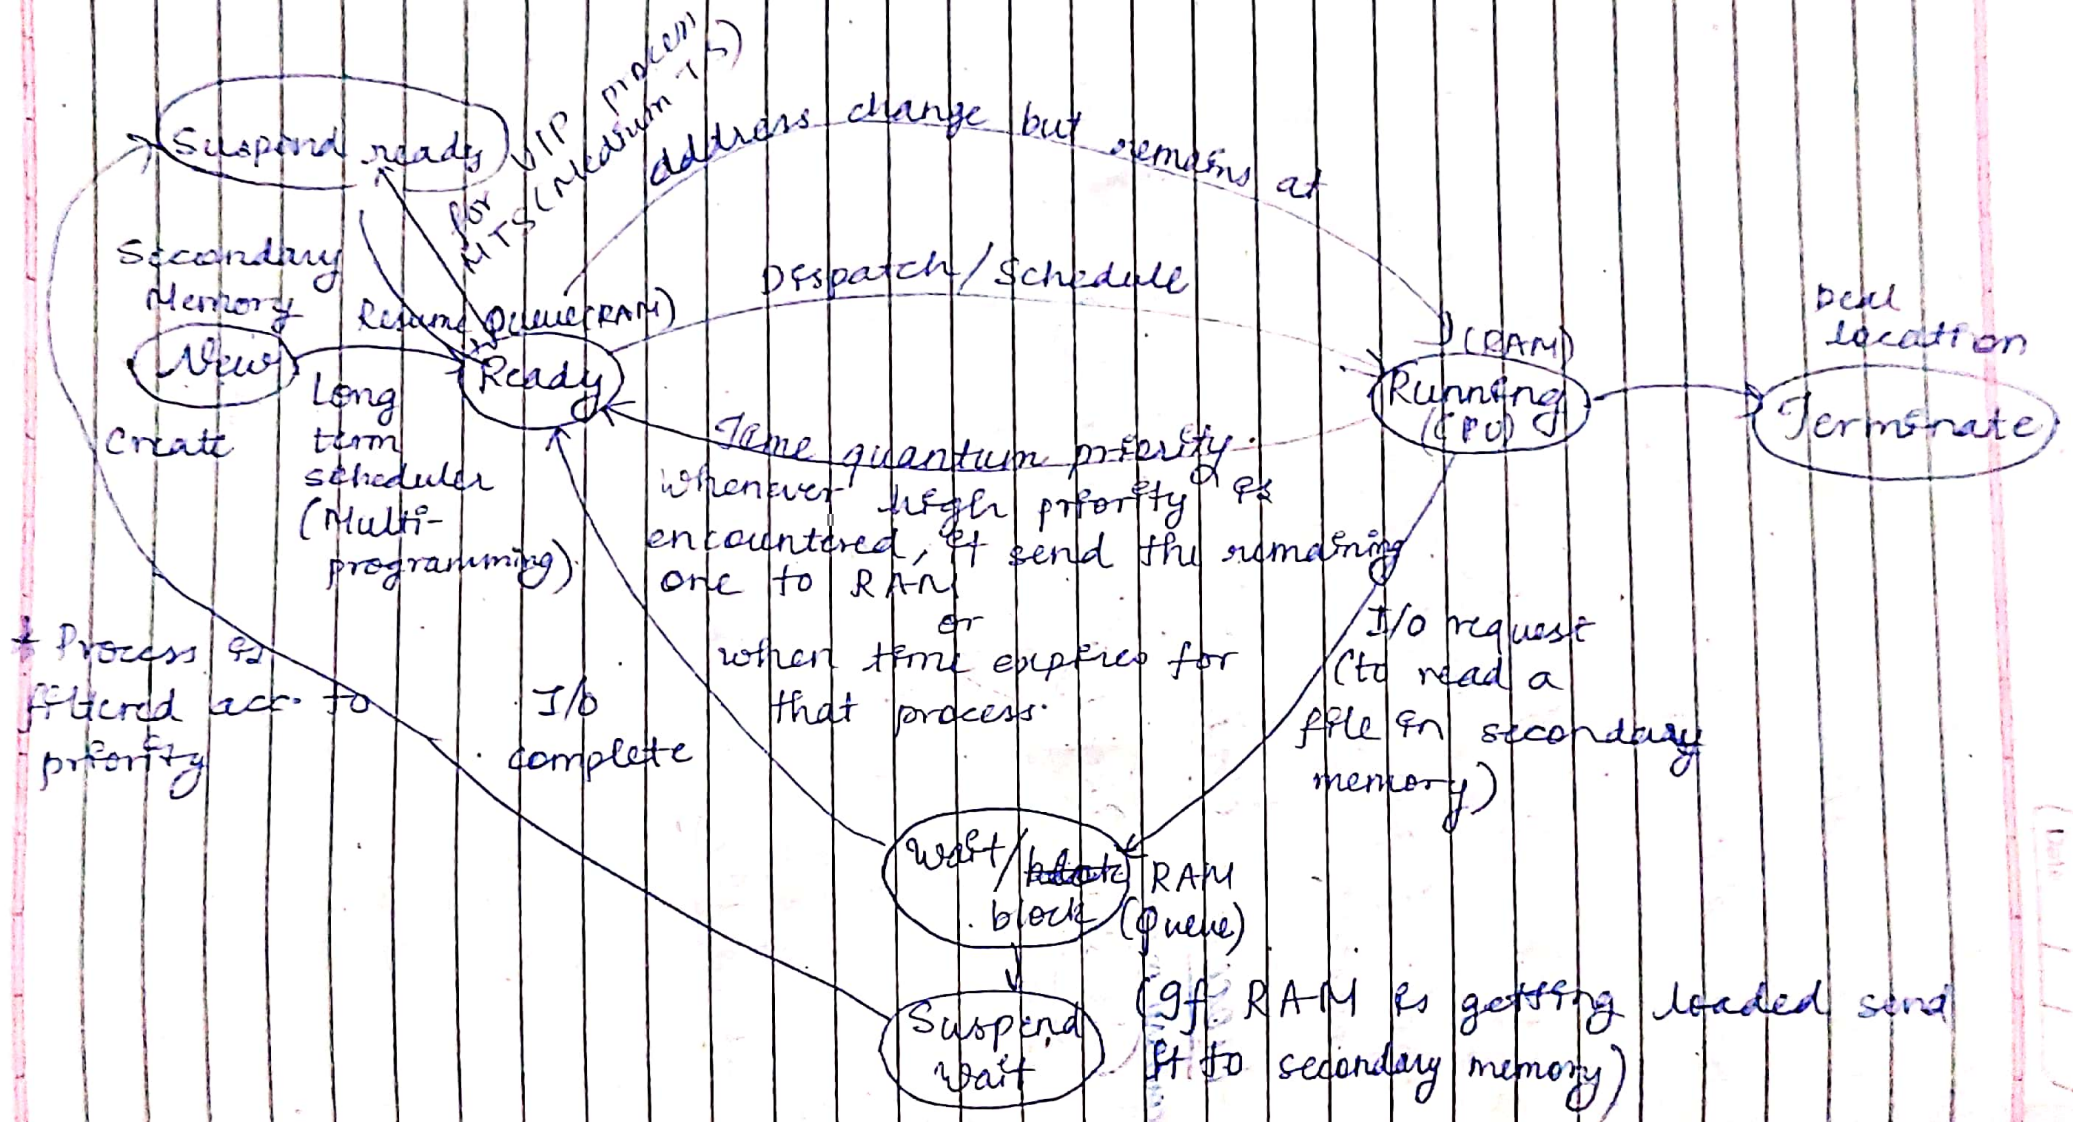 Suspend ready
for VIP process
MTS (Medium TS)
address change but remains at
Secondary
Memory
Resume
Queue(RAM)
Dispatch/Schedule
(RAM)
location
New
Ready
Running
(CPU)
Terminate
Create
Long
term
scheduler
(Multi-
programming)
Time quantum priority.
whenever high priority is
encountered, it send the remaining
one to RAM
or
when time expires for
that process.
I/O request
(to read a
file in secondary
memory)
* Process is
filtered acc. to
priority
I/O
complete
Wait/
block
RAM
(Queue)
Suspend
Wait
(If RAM is getting loaded send
it to secondary memory)